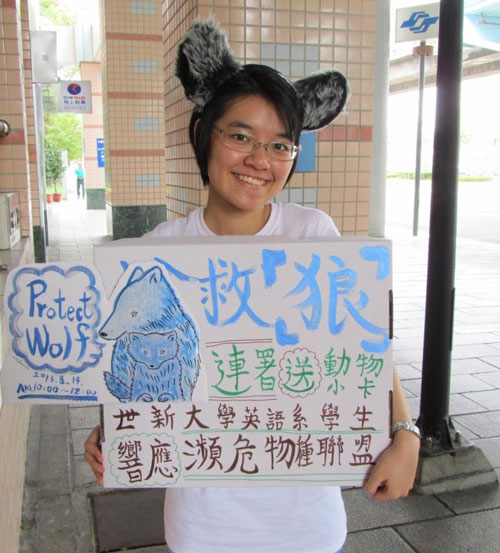 搶救「狼」
Protect
Wolf
2013.8.14
AM10:00~12:00
連署送動物小卡
世新大學英語系學生
響應瀕危物種聯盟